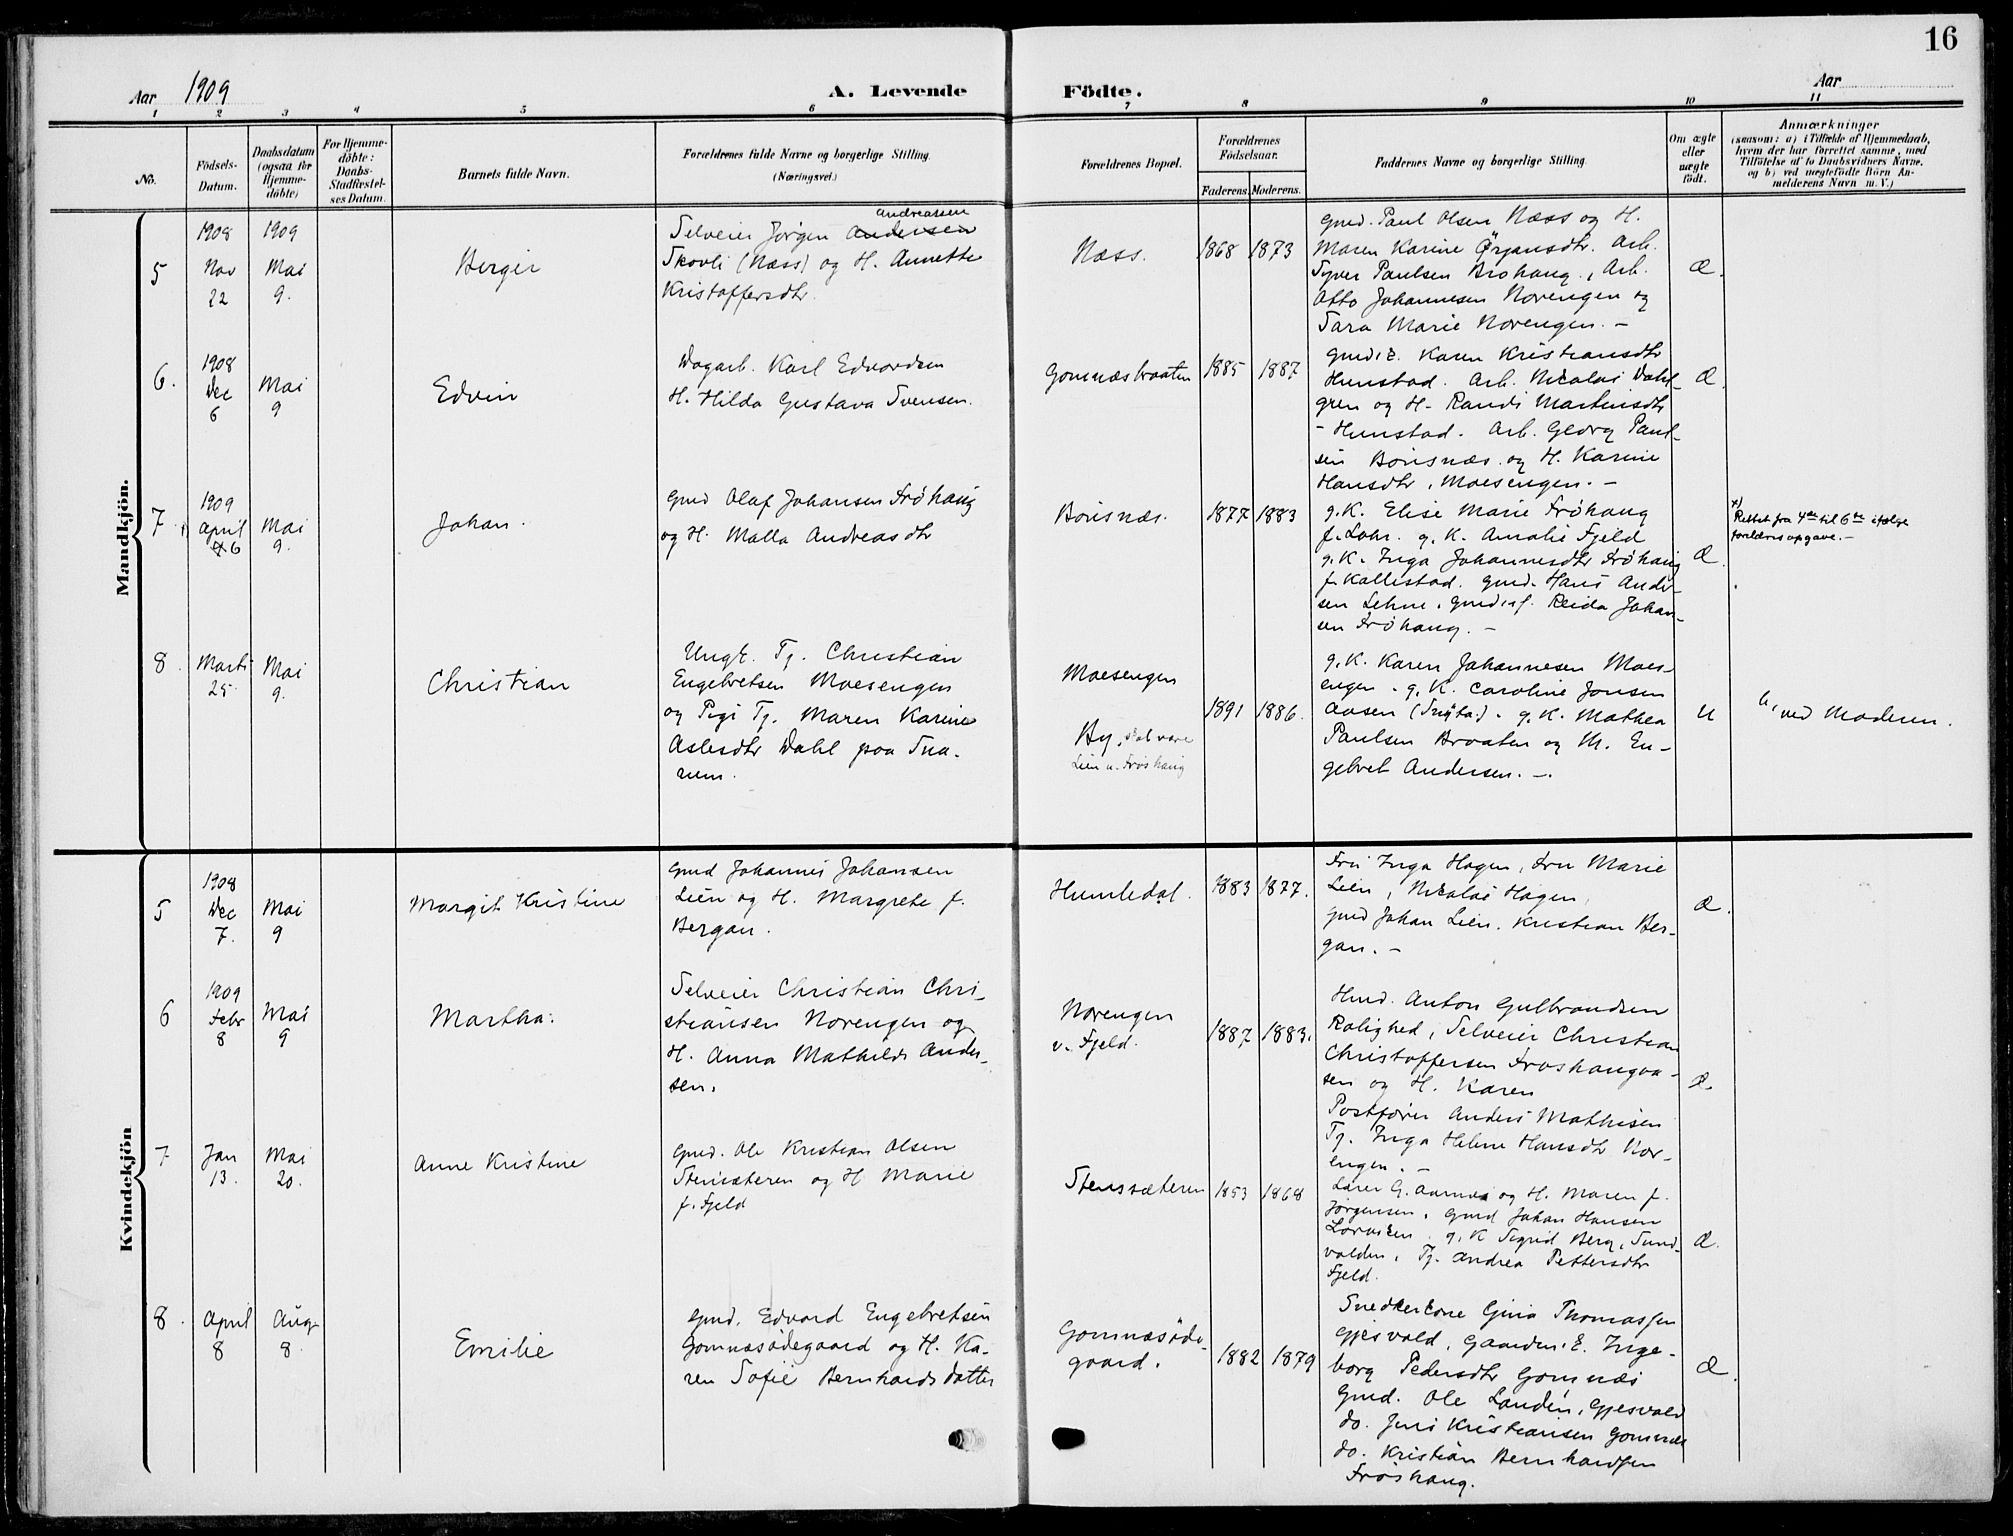 16
Aar 1909
A. Levende Födte.
Aar
1 2 3 4 5 6 7 8 9 10 11
No.
Födsels-
Datum.
Daabsdatum
(ogsaa for
Hjemme-
döbte)
For Hjemme-
döbte:
Daabs-
Stadfæstel-
ses Datum.
Barnets fulde Navn.
Forældrenes fulde Navne og borgerlige Stilling
(Næringsvei.)
Forældrenes Bopæl.
Forældrenes
Födselsaar.
Faderens. Moderens.
Faddernes Navne og borgerlige Stilling.
Om ægte
eller
uægte
födt.
Anmærkninger
(saasom: a) i Tilfælde af Hjemmedaab,
hvem der har forrettet samme, med
Tilföielse af to Daabsvidners Navne,
og b) ved uægtefödte Börn An-
melderens Navn m. V.)
Mandkjön.
5
1908
Nov
22
1909
Mai
9.
Birger
Andreassen
Selveier Jørgen Andersen
Skovli (Næss) og H. Annette
Kristoffersdtr.
Næss.
1868 1873
Gmd. Paul Olsen Næss og H.
Maren Karine Ørjansdtr. Arb.
Syver Paulsen Brohaug, Arb.
Otto Johannesen Norengen og
Sara Marie Norengen. –
Æ.
6.
1908
Dec
6
Mai
9
Edvin
Dagarb. Karl Edvardsen
H. Hilda Gustava Svensen.
Gomnæsbraaten
1885 1887
Karen Kristiansdtr
Hunstad. Arb. Nicolai Dahl-
gren og H. Randi Martinsdtr
– Hunstad. Arb. Georg Paul-
sen Bönsnæs og H. Karine
Hansdtr, Moesengen. –
Æ.
7
1909
April
6
Mai
9.
Johan.
Gmd Olaf Johansen Frøhaug
og H. Malla Andreasdtr
Bönsnæs.
1877 1883
g. K. Elise Marie Frøhaug
g. K. Amalie Fjeld
g. K. Inga Johannesdtr Frøhaug
f. Kallestad. Gmd. Hans Ander-
sen Lehne. Reida Johan-
sen Frøhaug. –
Æ.
x)
Rettet fra 4de til 6te ifølge
forældres opgave. –
8.
Marts
25.
Mai
9.
Christian
Ungk. Tj. Christian
Engebretsen Moesengen
og Pige Tj. Maren Karine
Aslesdtr Dahl paa Sna-
rum.
Moesengen
By, skal være
Lien u. Frøshaug
1891 1886.
g. K. Karen Johannesen Moes-
engen. g. K. Caroline Jonsen
Aasen g. K. Mathea
Paulsen Braaten og M. En-
gebret Andersen. –.
U
b, ved Moderen.
Kvindekjön
5
1908
Dec
7.
Mai
9
Margit Kristine
Gmd Johannes Johansen
Lien og H. Margrete f.
Bergan.
Humledal.
1883 1877.
Fru Inga Hagen, Fru Marie
Lien, Nicolai Hagen,
Gmd Johan Lien. Kristian Ber-
gan. –
Æ.
6
1909
Febr
8
Mai
9
Martha.
Selveier Christian Chri-
stiansen Norengen og
H. Anna Mathilde Ander-
sen.
Norengen
v. Fjeld.
1887 1883.
Hmd. Anton Gulbrandsen
Rolighed, Selveier Christian
Christoffersen Frøshaugaa-
sen og H. Karen
Postfører Anders Mathisen
Tj. Inga Helene Hansdtr Nor-
engen. –
Æ.
7
Jan
13.
Mai
20.
Anne Kristine
Gmd. Ole Kristian Olsen
Stensæteren og H Marie
f. Fjeld
Stenssæteren
1853 1868
Lærer G. Aarnes og H. Maren f.
Jørgensen. Gmd Johan Hansen
Lorviken. g. K Sigrid Berg, Sund-
volden. Tj. Andrea Pettersdtr
Fjeld.
Æ.
8.
April
8
Aug.
8.
Emilie
Gmd. Edvard Engebretsen
Gomnæsødegaard og H. Ka-
ren Sofie Bernhardsdatter
Gomnæsøde-
gaard.
1882 1879
Snedkerkone Gina Thomassen
Gjesvold, Gaardm. E. Inge-
borg Pedersdtr Gomnæs
Gmd. Ole Landen, Gjesvold
do. Jens Kristiansen Gomnæs
do. Kristian Bernhardsen
Frøshaug.
Æ.